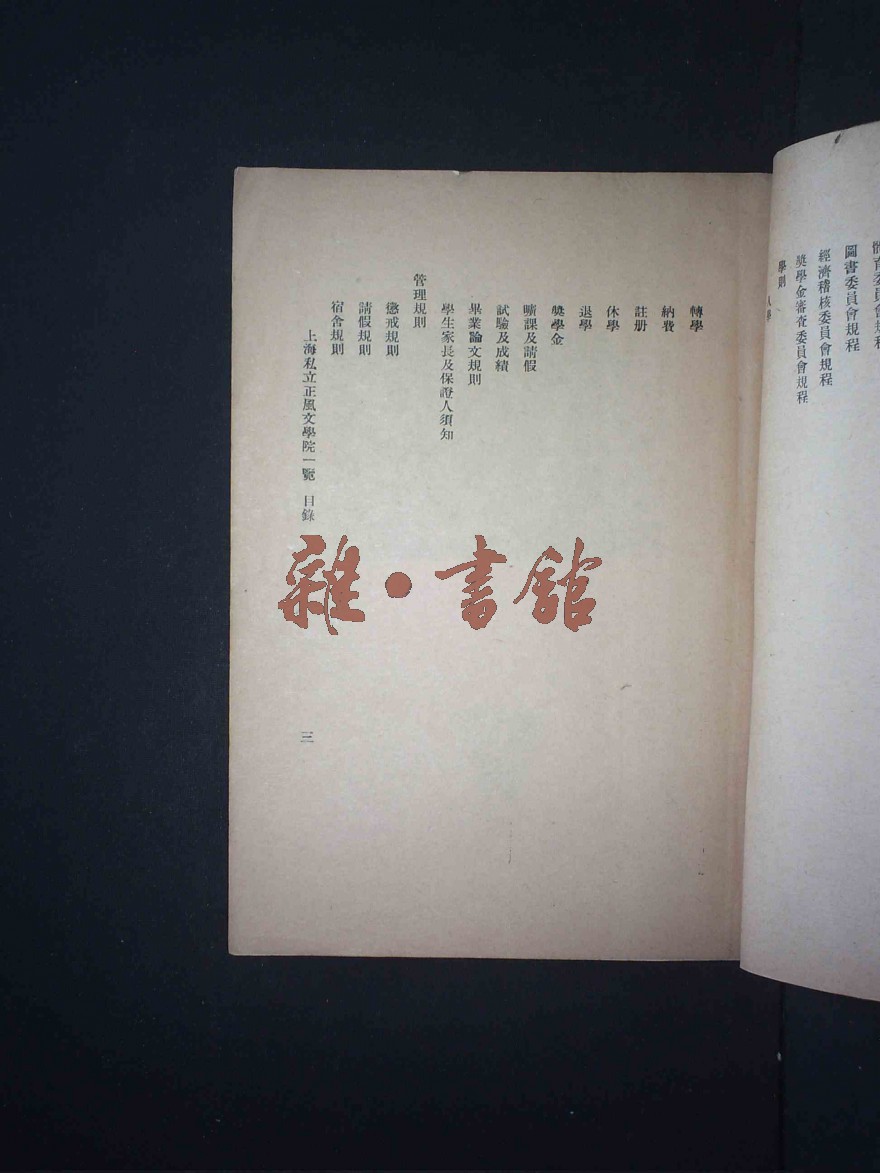 體育委員會規程
圖書委員會規程
經濟稽核委員會規程
獎學金審查委員會規程
學則
入學
轉學
納費
註册
休學
退學
獎學金
曠課及請假
試驗及成績
畢業論文規則
學生家長及保證人須知
管理規則
懲戒規則
請假規則
宿舍規則
上海私立正風文學院一覽 目錄
三
雜·書館